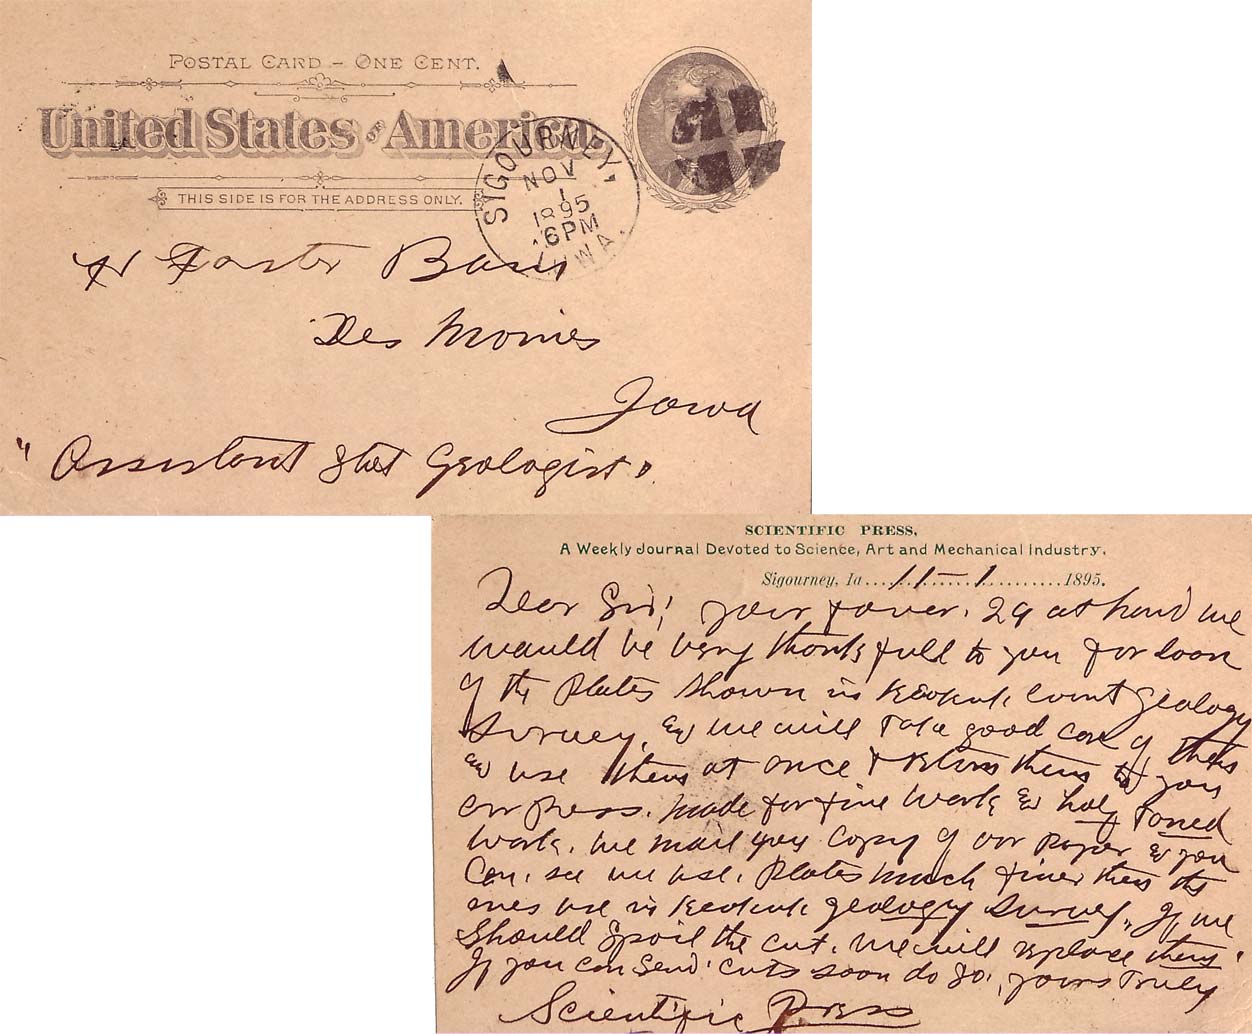 POSTAL CARD – ONE CENT.
United States of America.
THIS SIDE IS FOR THE ADDRESS ONLY.
SIGOURNEY,
NOV
1
1895
6PM
IOWA.
H Foster Bain
Des Moines
Iowa
"Assistant Stat Geologist".
SCIENTIFIC PRESS,
A Weekly Journal Devoted to Science, Art and Mechanical Industry.
Sigourney, Ia....11-1....1895.
Dear Sir! your favor. 29 at hand we
would be very thankfull to you for loan
of the Plates shown in Keokuk Count Geology
Survey. & we will take good care of them
& use them at once & return them to you
our press. made for fine work & half toned
work. we mail you copy of our paper & you
can. see we use. Plates much finer then the
ones use in Keokuk geology Survey. If we
should spoil the cut. we will replace them.
If you can send cuts soon do so. yours Truly
Scientific Press